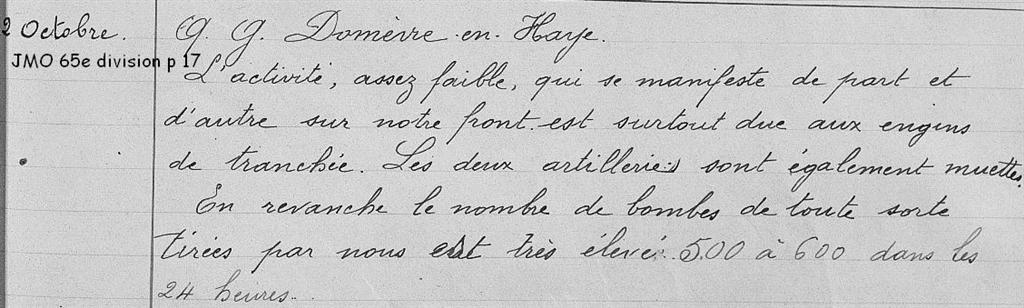 2 Octobre. Q. G. Domèvre-en-Haye.
JMO 65e division p 17
L'activité, assez faible, qui se manifeste de part et
d'autre sur notre front est surtout due aux engins
de tranchée. Les deux artilleries sont également muettes.
En revanche le nombre de bombes de toute sorte
tirées par nous est très élevé: 500 à 600 dans les
24 heures.